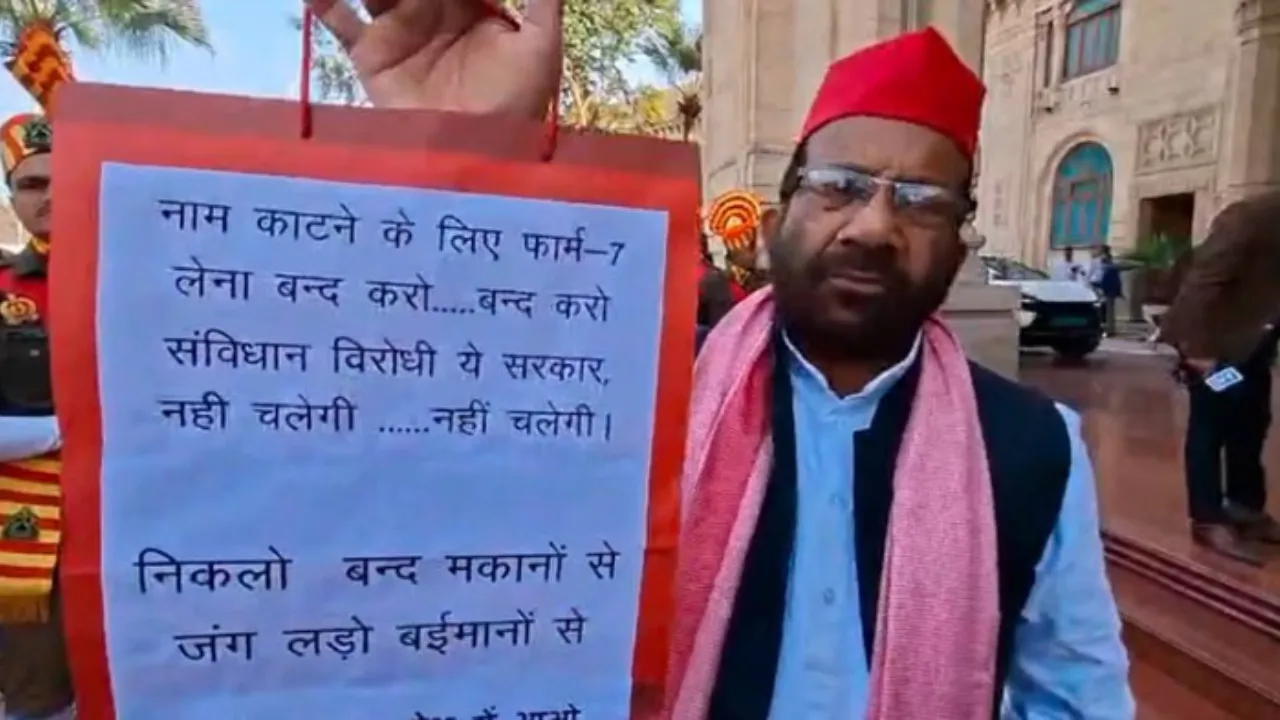 नाम काटने के लिए फार्म–7
लेना बन्द करो.....बन्द करो
संविधान विरोधी ये सरकार,
नही चलेगी ......नहीं चलेगी।
निकलो बन्द मकानों से
जंग लड़ो बईमानों से
में आओ